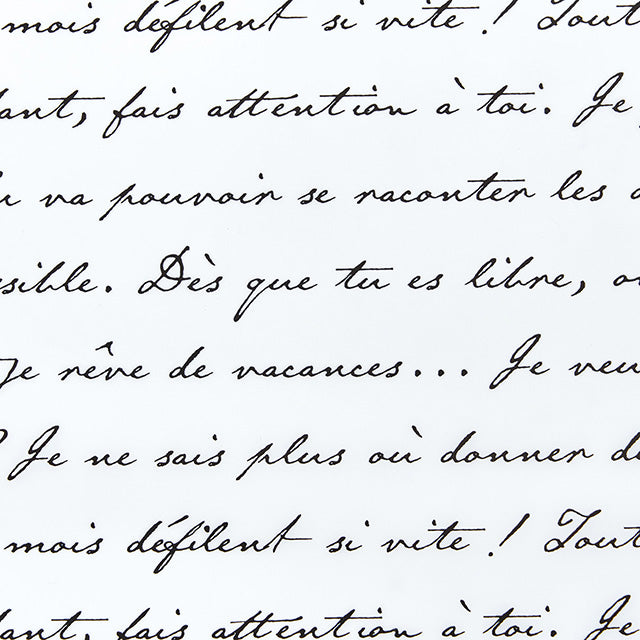 mois défilent si vite ! Tout
ant, fais attention à toi. Je
va pouvoir se raconter les
sible. Dès que tu es libre, o
Je rêve de vacances... Je veu
? Je ne sais plus où donner d
mois défilent si vite ! Tout
ant, fais attention à toi. Je